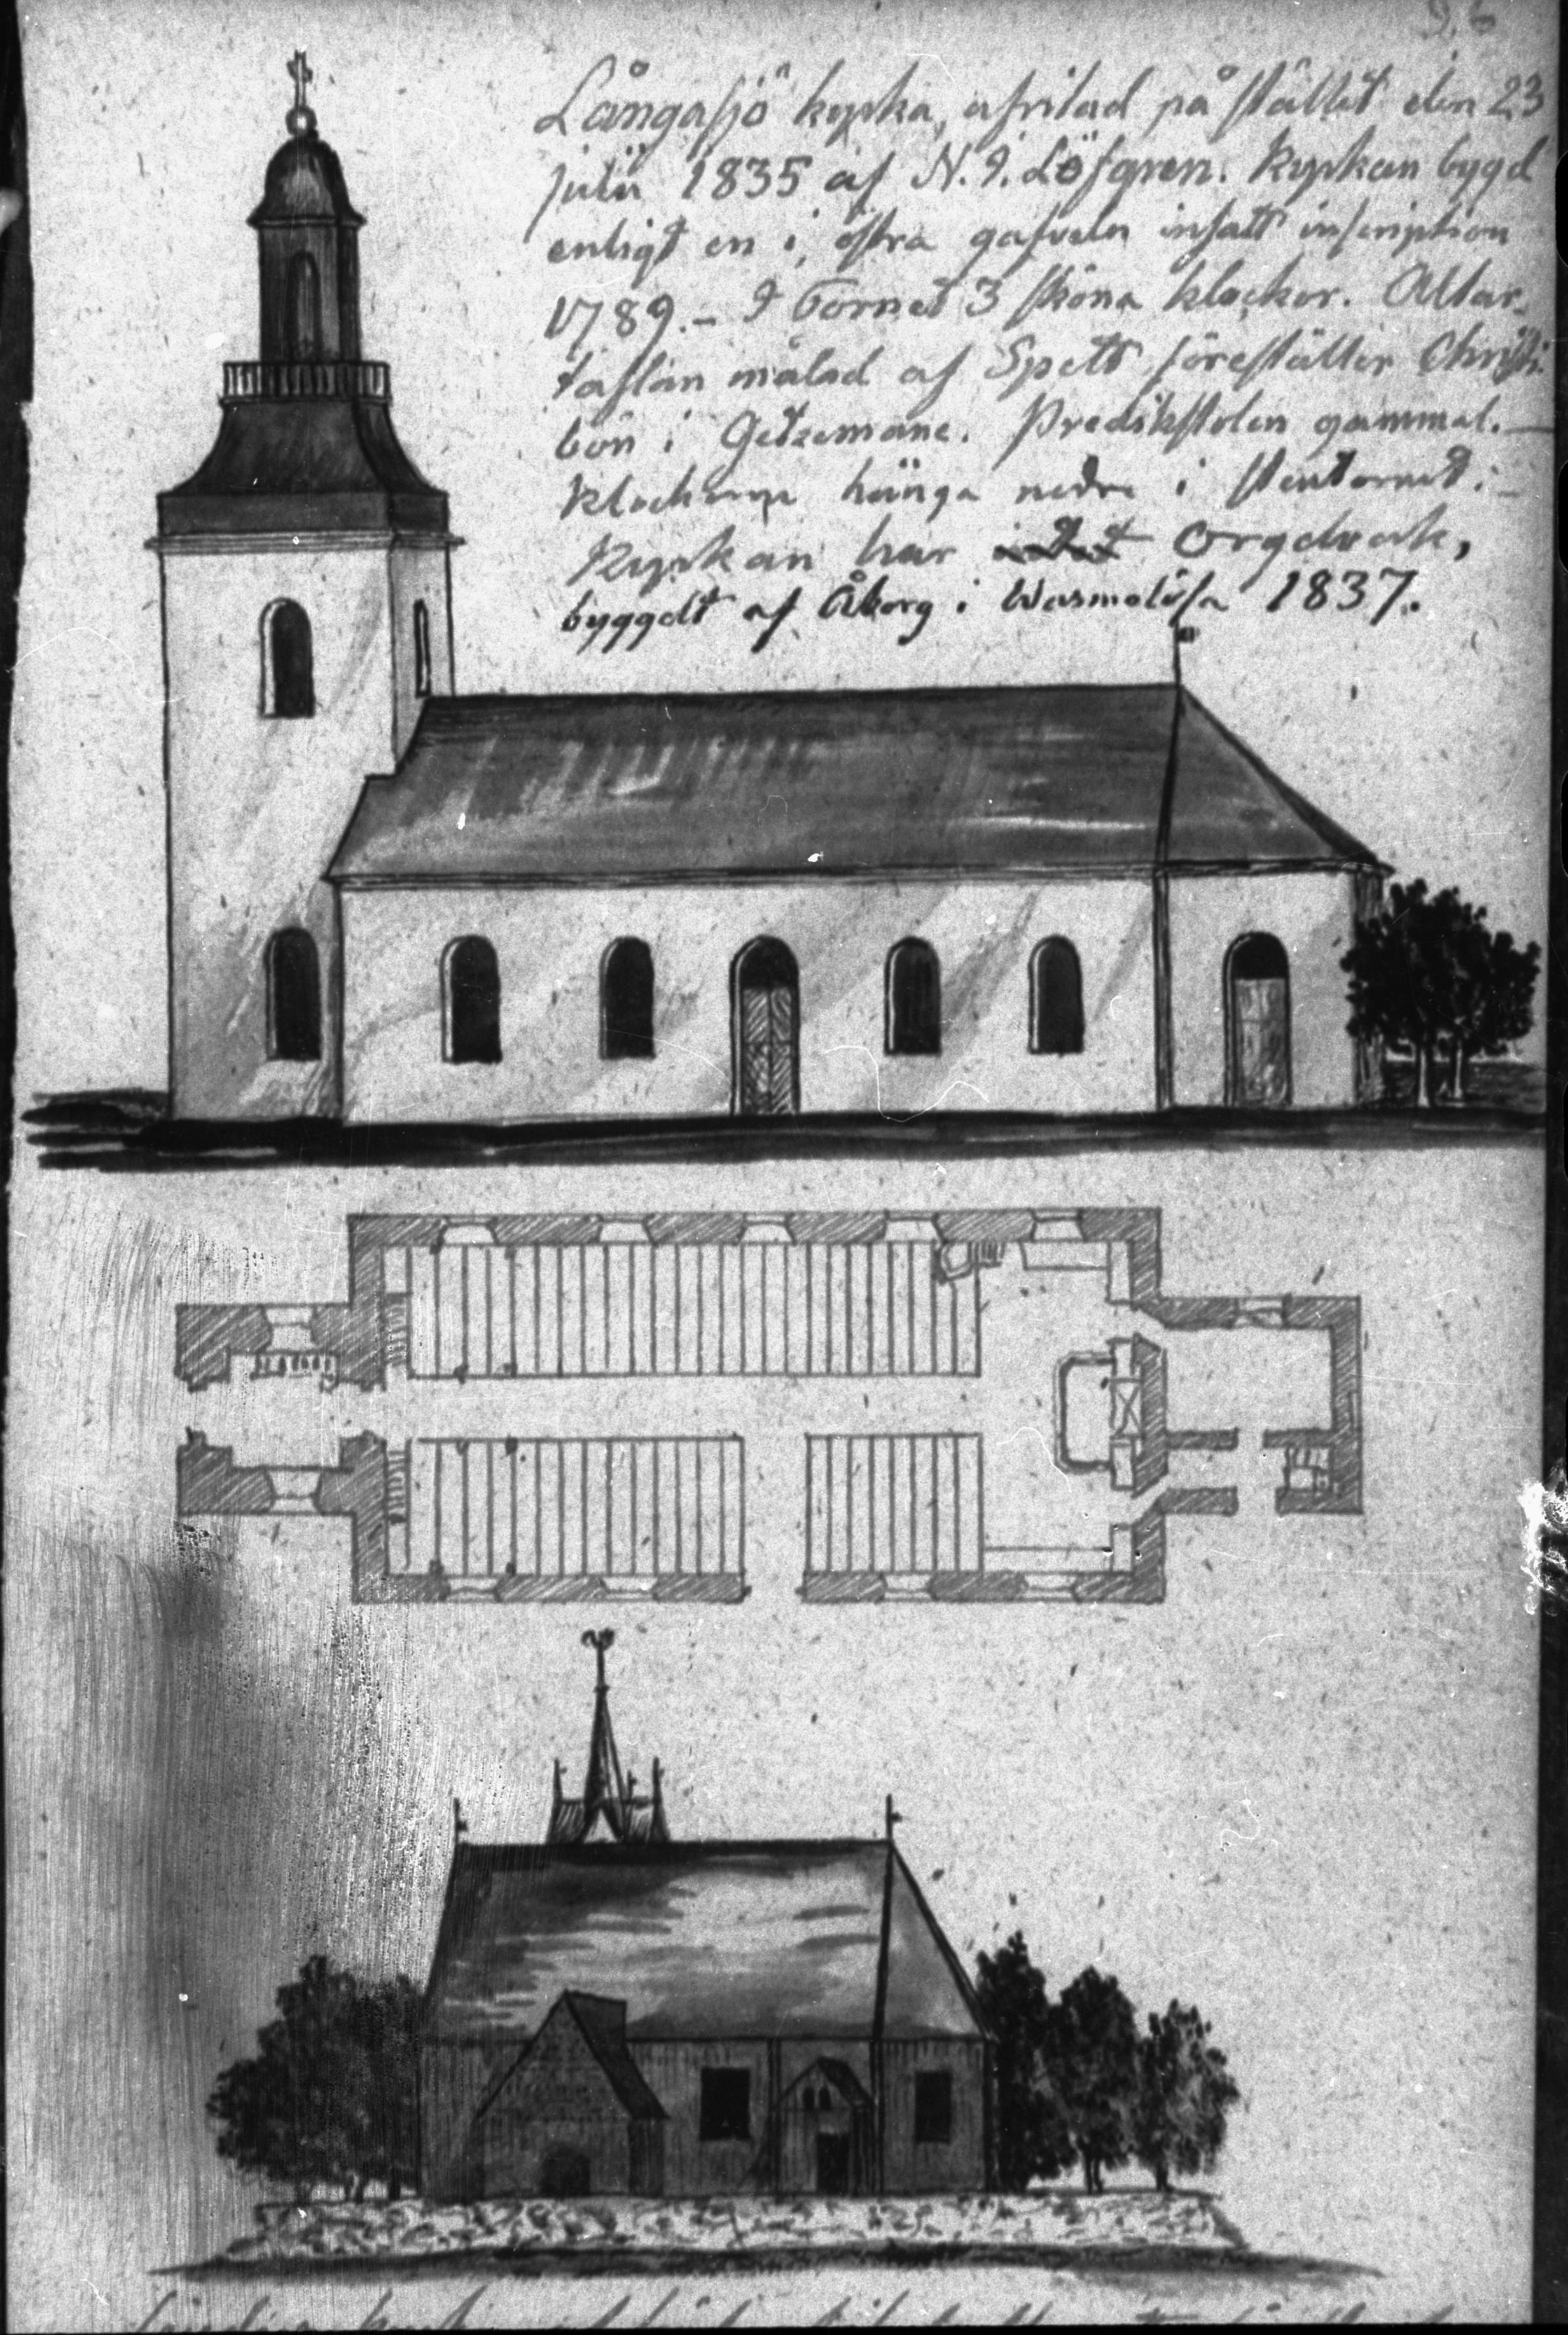 Långasjö kyrka, afritad på stället den 23
julii 1835 af N. I. Löfgren. Kyrkan bygd
enligt en i östra gafveln insatt inscription
1789. – I Tornet 3 sköna klockor. Altar-
taflan målad af Spett föreställer Christi
bön i Getzemane. Predikstolen gammal. –
Klockorna hänga nedre i stentornet: –
Kyrkan har Orgelverk,
byggdt af Åberg i Wasmolösa 1837.